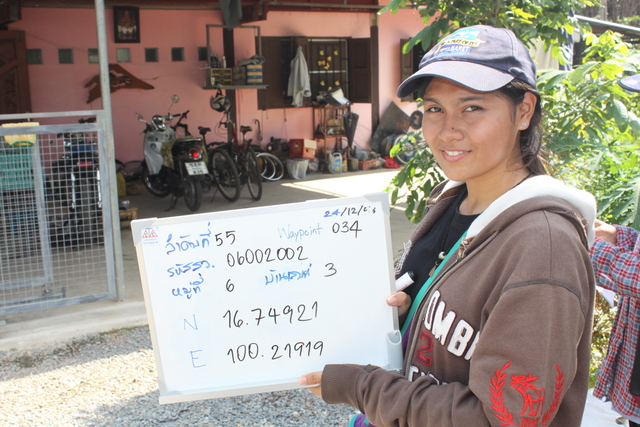 24/12/56
ลำดับที่ 55 Waypoint 034
รหัสรว. 06002002
หมู่ที่ 6 บ้านเลขที่ 3
N 16.74921
E 100.21919
OMB
2